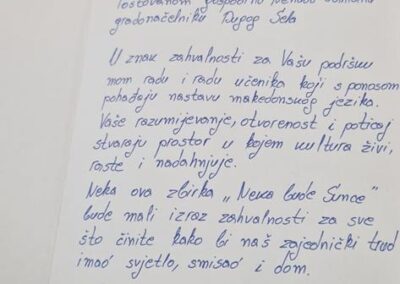 Poštovanom gospodinu Nenadu
gradonačelniku Dugog Sela
U znak zahvalnosti za Vašu podršku
mom radu i radu učenika koji s ponosom
pohađaju nastavu makedonskog jezika.
Vaše razumijevanje, otvorenost i poticaj
stvaraju prostor u kojem kultura živi,
raste i nadahnjuje.
Neka ova zbirka „Neka bude Sunce"
bude mali izraz zahvalnosti za sve
što činite kako bi naš zajednički trud
imao svjetlo, smisao i dom.